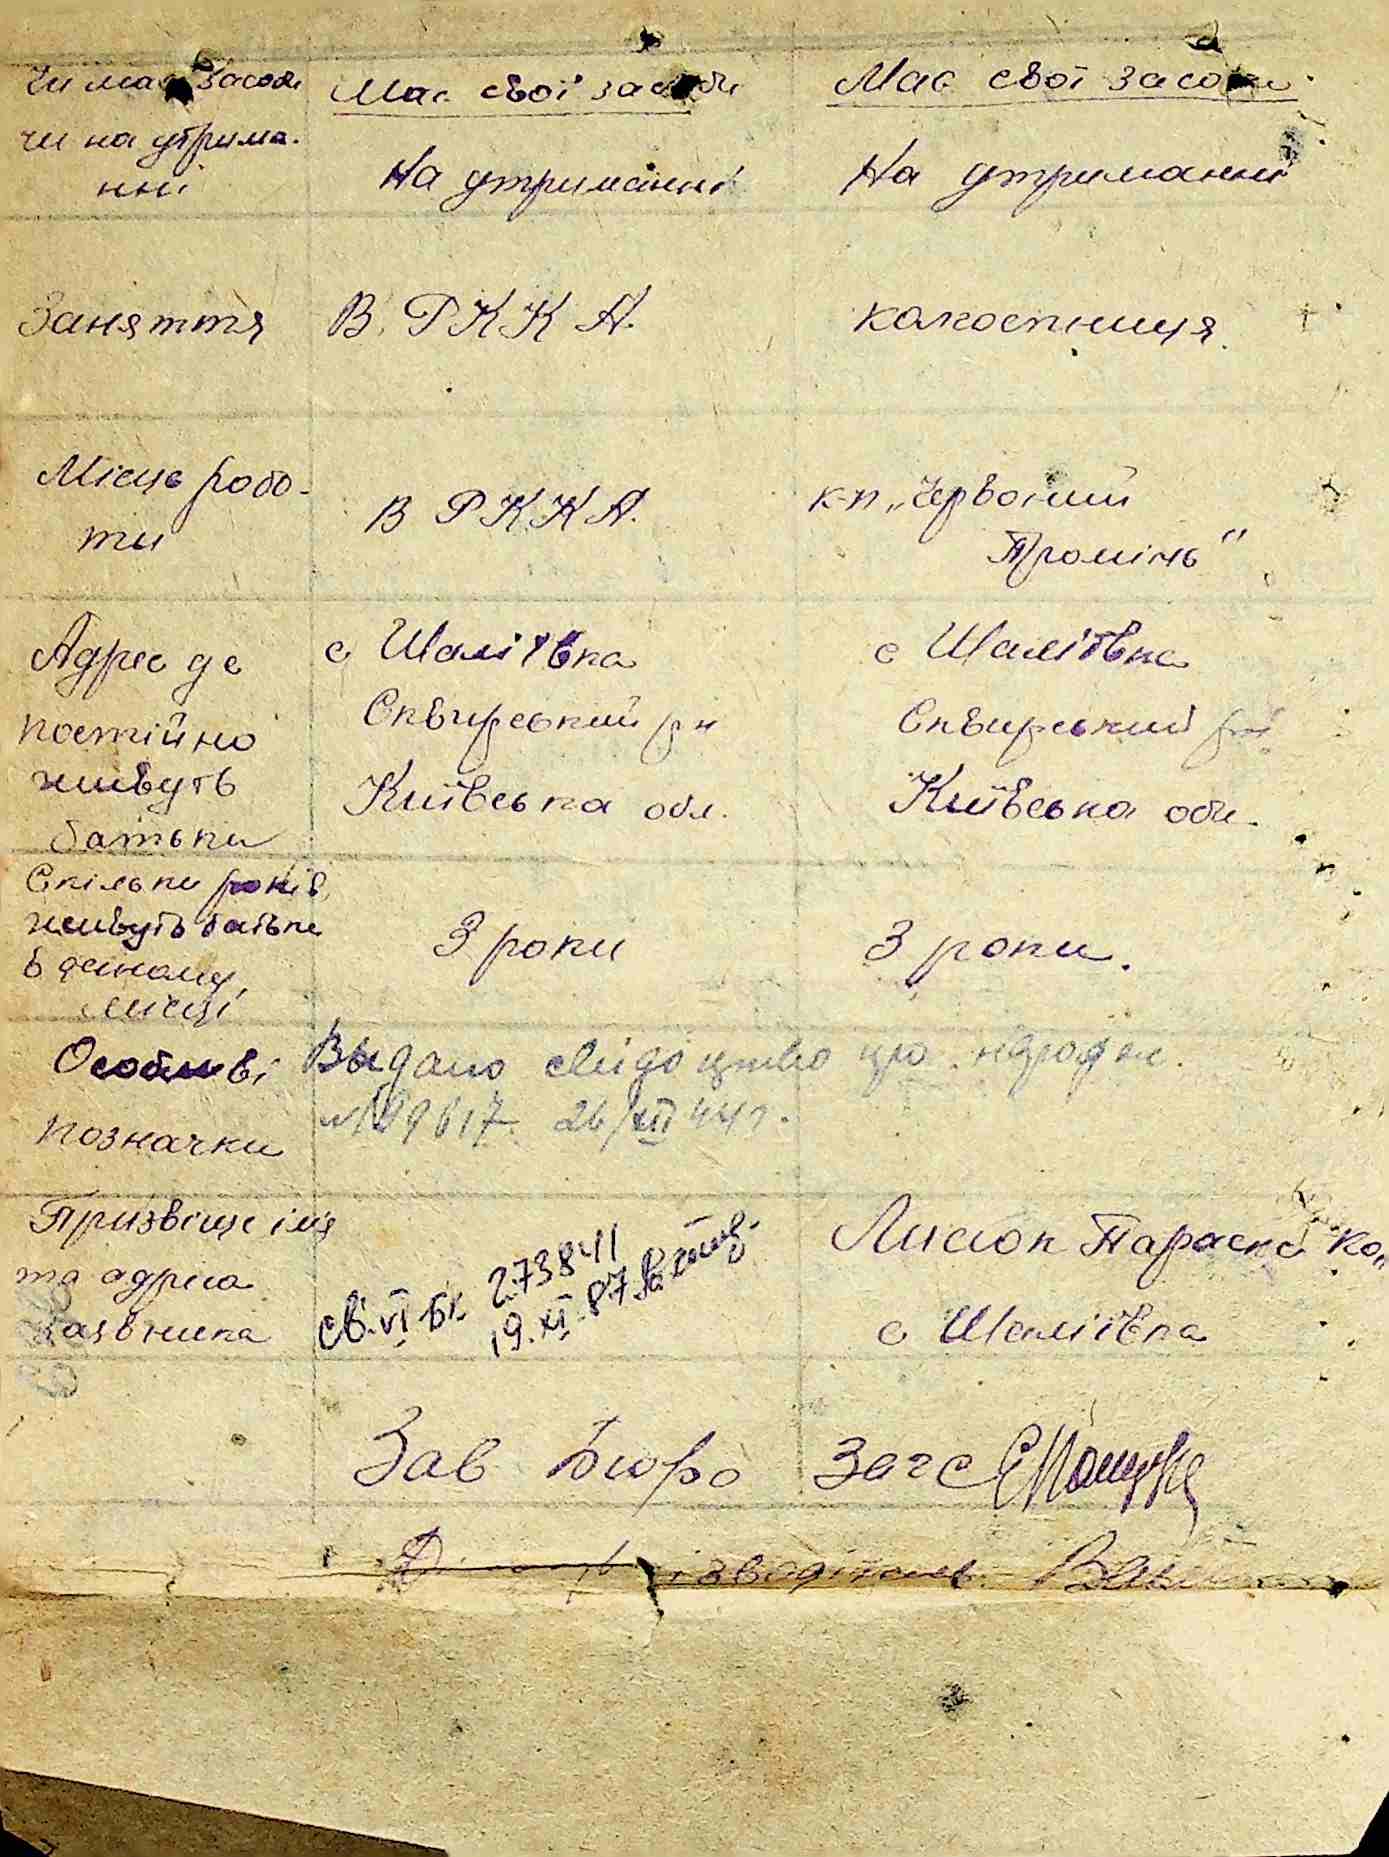 Чи має засоби
чи на утрима-
нні
Має свої засоби
На утриманні
Має свої засоби
На утриманні
Заняття
В. РККА.
колгоспниця.
Місце робо-
ти
В РККА.
к-п „Червоний
Промінь"
Адрес де
постійно
живуть
батьки
с Шаліївка
Сквирський рн
Київська обл.
с Шаліївка
Сквирський рн
Київська обл.
Скільки років
живуть батьки
в даному
місці
3 роки
3 роки.
Особливі
позначки
Выдано свідоцтво про народж.
26/XII 44 г.
Призвіще імя
та адреса
заявника
св. VI БК 273841
19.XI.87
Лисюк Параска
с Шаліївка
Зав Бюро Загс